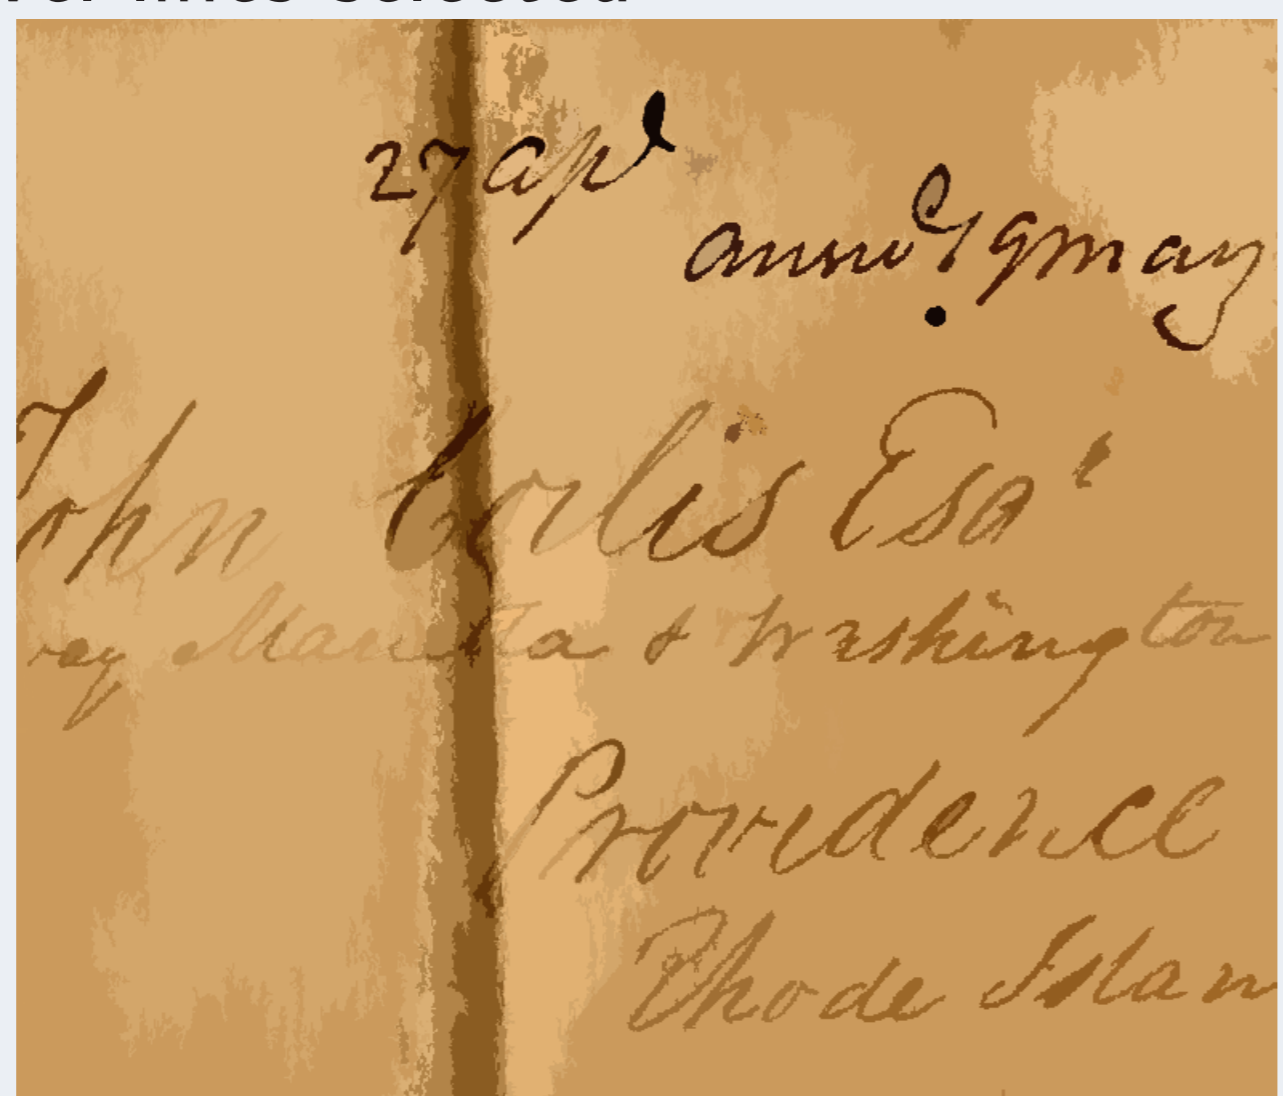 27 apl
answd 9 may
John Corlis Esqr
way Marietta & Washington
Providence
Rhode Islan